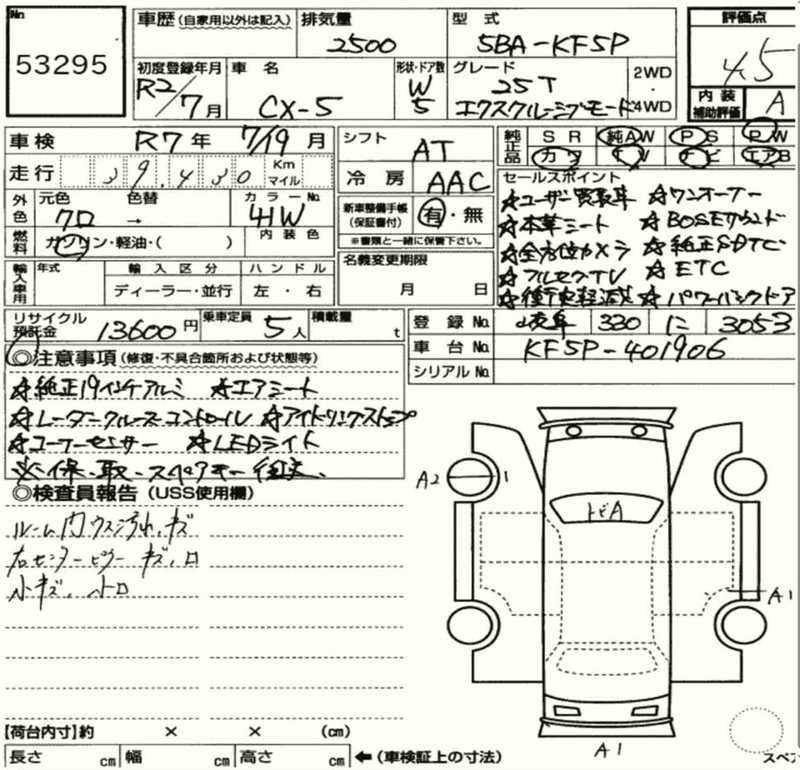 No
53295
車歴 (自家用以外は記入) 排気量 2500 型式 5BA-KF5P 評価点 4.5
初度登録年月 R2/7月 車名 CX-5 形状・ドア数 W 5 グレード 25T エクスクルーシブモード 2WD・4WD
内装補助評価 A
車検 R7年 7/19月 シフト AT 純正品 SR 純AW PS PW
カワ TV ナビ エアB
走行 39,430 Km マイル 冷房 AAC
外色 元色 クロ 色替 → カラーNo. 41W
新車整備手帳 (保証書付) 有・無
※書類と一緒に保管下さい。
燃料 ガソリン・軽油・( ) 内装色
セールスポイント
☆ユーザー買取車 ☆ワンオーナー
☆本革シート ☆BOSEサウンド
☆全方位カメラ ☆純正SDTC
☆フルセグTV ☆ETC
☆衝突軽減 ☆パワーバックドア
輸入車用 年式 輸入区分 ディーラー・並行 ハンドル 左・右
名義変更期限 月 日
リサイクル預託金 13600円 乗車定員 5人 積載量 t
登録No. 岐阜 330 に 3053
車台No. KF5P-401906
シリアルNo.
◎注意事項 (修復・不具合箇所および状態等)
☆純正19インチアルミ ☆エアシート
☆レーダークルーズコントロール ☆アイドリングストップ
☆コーナーセンサー ☆LEDライト
※保、取、スペアキー
◎検査員報告 (USS使用欄)
ルーム内ウス汚れ、キズ
右センターピラー キズ、凹
小キズ、小凹
A2 1
トビA
A1
A1
【荷台内寸】約 × × (cm)
長さ cm 幅 cm 高さ cm ←(車検証上の寸法)
スペア